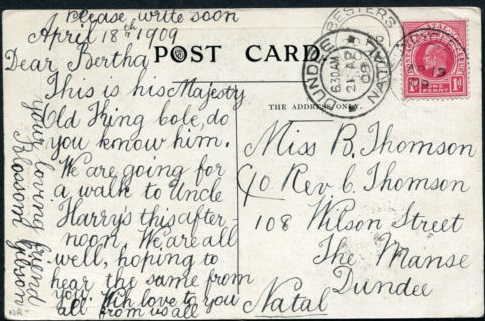 Please write soon
April 18th 1909
Dear Bertha
This is his Majesty
Old King bole, do
you know him.
We are going for
a walk to Uncle
Harry's this after-
noon. We are all
well, hoping to
hear the same from
you. With love to you
all from us all
your loving friend
Blosom Gibson
POST CARD.
THE ADDRESS ONLY.
Miss B. Thomson
C/o Rev. C. Thomson
108 Wilson Street
The Manse
Dundee
Natal
BESTERS
NATAL
DUNDEE
6.30AM
21 AP
09
NATAL
1d
ONE PENNY
1d